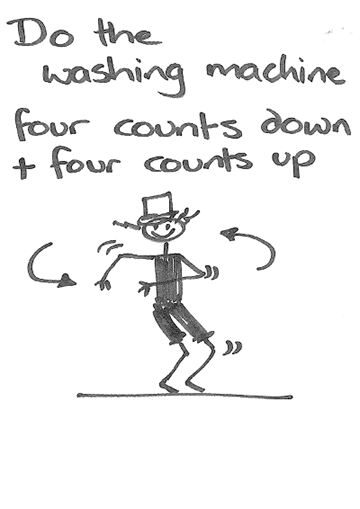 Do the
washing machine
four counts down
+ four counts up